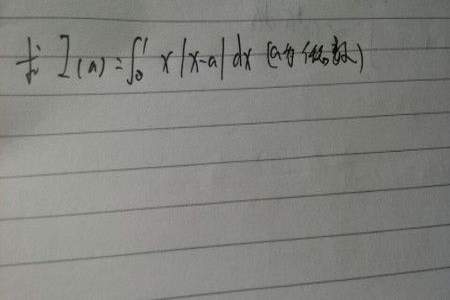 求 I(a)=∫₀¹ x|x-a|dx (a为任意实数)